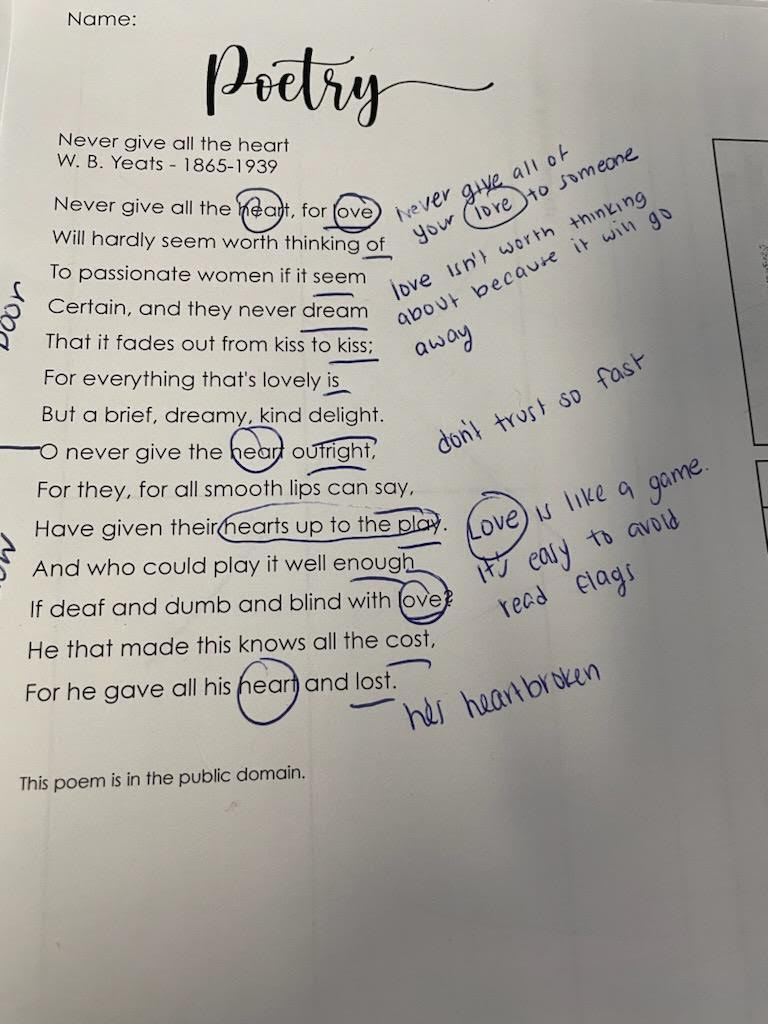 Name:
Poetry
Never give all the heart
W. B. Yeats - 1865-1939
Never give all the heart, for love
Will hardly seem worth thinking of
To passionate women if it seem
Certain, and they never dream
That it fades out from kiss to kiss;
For everything that's lovely is
But a brief, dreamy, kind delight.
O never give the heart outright,
For they, for all smooth lips can say,
Have given their hearts up to the play.
And who could play it well enough
If deaf and dumb and blind with love?
He that made this knows all the cost,
For he gave all his heart and lost.
This poem is in the public domain.
Never give all of
your love to someone
love isn't worth thinking
about because it will go
away
don't trust so fast
Love is like a game.
it's easy to avoid
read flags
hes heartbroken